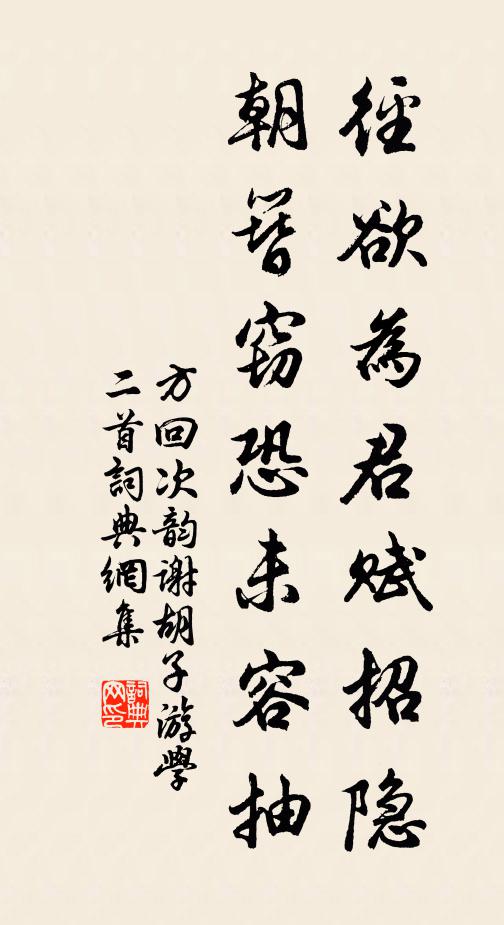 徑欲為君賦招隐
朝簪窃恐未容抽
方回次韵谢胡子游學
二首詞典網集
詞典网印